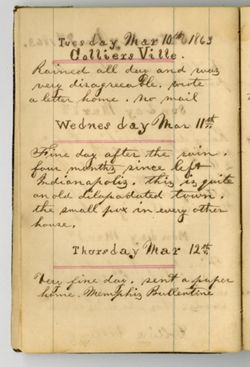 Tuesday Mar 10th 1863
Colliers Ville.
Rained all day and was
very disagreeable. wrote
a letter home. No mail
Wednesday Mar 11th
Fine day after the rain.
four months since left
Indianapolis. this is quite
an old dilapadated town.
the small pox in every other
house.
Thursday Mar 12th
Very fine day. sent a paper
home. Memphis Bullentine